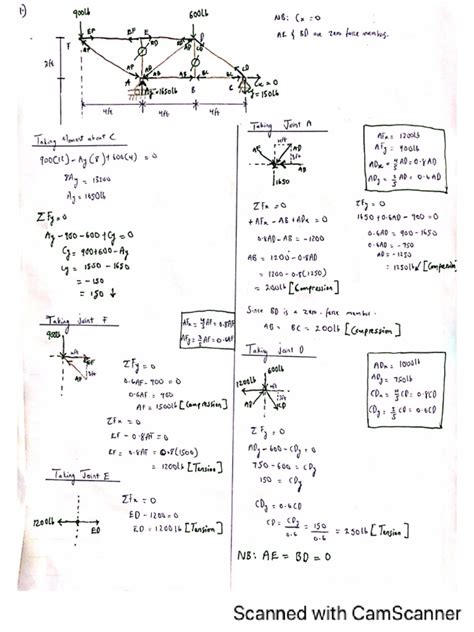 1)
900lb
600lb
NB: Cx = 0
AE & BD are zero force members.
EF
EF
E
D
F
3ft
A
B
C
Cx = 0
Ay = 1650lb
= 150lb
4ft
4ft
4ft
Taking Moment about C
900(12) - Ay (8) + 600(4) = 0
8Ay = 13200
Ay = 1650lb
ΣFy = 0
Ay - 900 - 600 + Cy = 0
Cy = 900 + 600 - Ay
Cy = 1500 - 1650
= - 150
= 150 ↓
Taking Joint F
900lb
EF
AF
4ft
3ft
AFx = 4/5 AF = 0.8AF
AFy = 3/5 AF = 0.6AF
ΣFy = 0
0.6AF - 900 = 0
0.6AF = 900
AF = 1500lb [Compression]
ΣFx = 0
EF - 0.8AF = 0
EF = 0.8AF = 0.8(1500)
= 1200lb [Tension]
Taking Joint E
1200lb
ED
ΣFx = 0
ED - 1200 = 0
ED = 1200lb [Tension]
Taking Joint A
AF
AD
AB
4ft
3ft
1650
AFx = 1200lb
AFy = 900lb
ADx = 4/5 AD = 0.8AD
ADy = 3/5 AD = 0.6AD
ΣFx = 0
+ AFx - AB + ADx = 0
0.8AD - AB = -1200
AB = 1200 - 0.8AD
= 1200 - 0.8(1250)
= 200lb [Compression]
ΣFy = 0
1650 + 0.6AD - 900 = 0
0.6AD = 900 - 1650
0.6AD = - 750
AD = - 1250
= 1250lb [Compression]
Since BD is a zero force member.
AB = BC = 200lb [Compression]
Taking Joint D
600lb
1200lb
AD
CD
ADx = 1000lb
ADy = 750lb
CDx = 4/5 CD = 0.8CD
CDy = 3/5 CD = 0.6CD
ΣFy = 0
ADy - 600 - CDy = 0
750 - 600 = CDy
150 = CDy
CDy = 0.6CD
CD = CDy/0.6 = 150/0.6 = 250lb [Tension]
NB: AE = BD = 0
Scanned with CamScanner